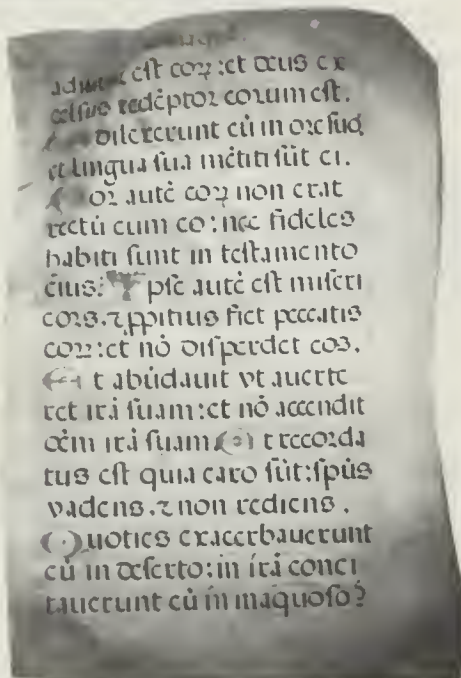 adiutor est coꝝ: et deus ex
celsus redẽptor eorum est.
Et dilexerunt eũ in ore suo,
et lingua sua mẽtiti sũt ei.
Cor autẽ eoꝝ non erat
rectũ cum eo: nec fideles
habiti sunt in testamento
eius: Ipse autẽ est miseri
cors. ⁊ ꝓpitius fiet peccatis
eoꝝ: et nõ disperdet eos.
Et abũdauit vt auerte
ret irã suam: et nõ accendit
oẽm irã suam Et recorda
tus est quia caro sũt: spũs
vadens. ⁊ non rediens.
Quoties exacerbauerunt
eũ in deserto: in irã conci
tauerunt eũ in inaquoso?